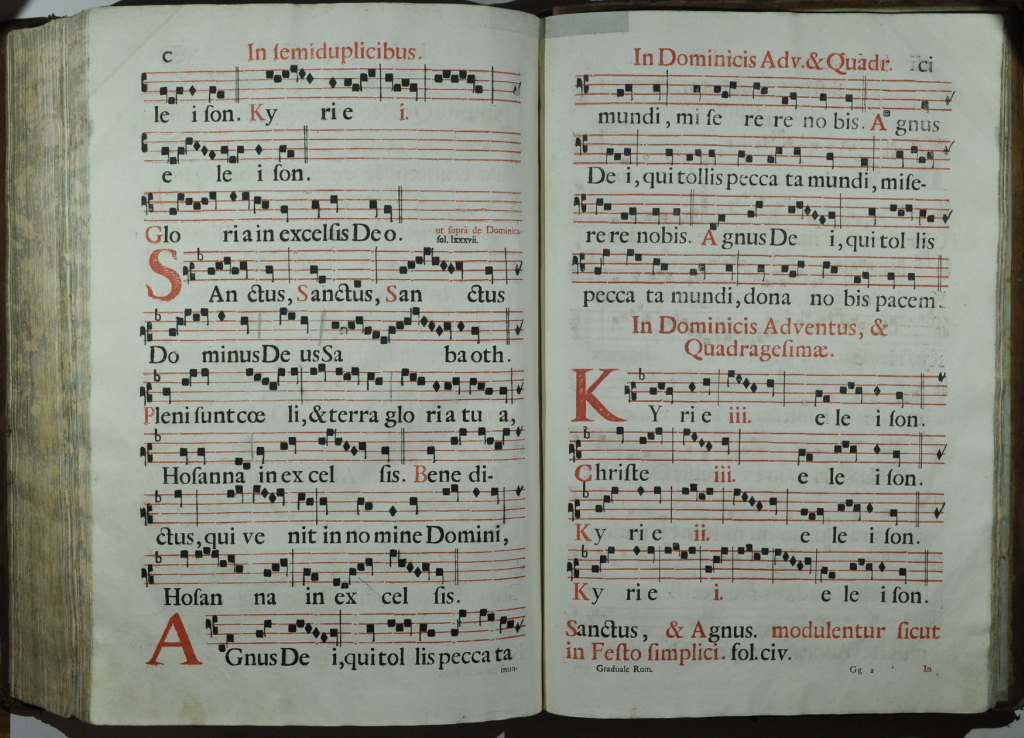 c
In ſemiduplicibus.
le i ſon. Ky ri e i.
e le i ſon.
Glo ri a in excelſis Deo.
ut ſuprà de Dominica
fol. lxxxvii.
SAn ctus, Sanctus, San ctus
Do minus De us Sa ba oth.
Pleni ſunt cœ li, & terra glo ri a tu a,
Hoſanna in ex cel ſis. Bene di-
ctus, qui ve nit in no mine Domini,
Hoſan na in ex cel ſis.
AGnus De i, qui tol lis pecca ta
mun-
In Dominicis Adv. & Quadr. ci
mundi, mi ſe re re no bis. A gnus
De i, qui tollis pecca ta mundi, miſe-
re re nobis. A gnus De i, qui tol lis
pecca ta mundi, dona no bis pacem.
In Dominicis Adventus, &
Quadrageſimæ.
KY ri e iii. e le i ſon.
Chriſte iii. e le i ſon.
Ky ri e ii. e le i ſon.
Ky ri e i. e le i ſon.
Sanctus, & Agnus. modulentur ſicut
in Feſto ſimplici. fol. civ.
Graduale Rom. Gg 2 In